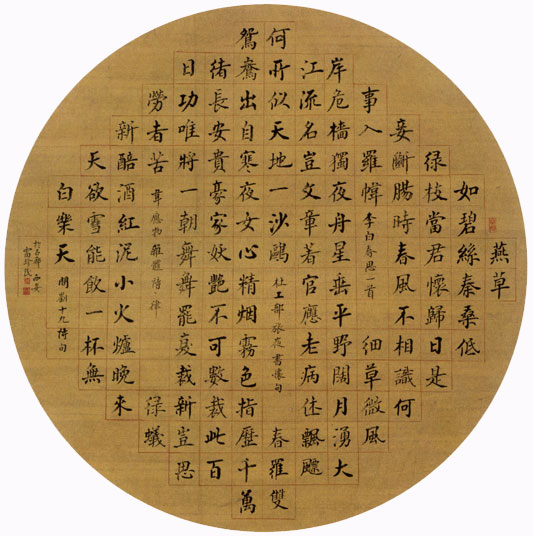 燕草
如碧絲秦桑低
綠枝當君懷歸日是
妾斷腸時春風不相識何
事入羅幃 李白春思一首 細草微風
岸危檣獨夜舟星垂平野闊月湧大
江流名豈文章著官應老病休飄飄
何所似天地一沙鷗 杜工部旅夜書懷句 春羅雙
鴛鴦出自寒夜女心精烟霧色指歷千萬
緒長安貴豪家妖艷不可數裁此百
日功唯將一朝舞舞罷复裁新豈思
勞者苦 韋應物雜體詩一律 綠蟻
新醅酒紅泥小火爐晚來
天欲雪能飲一杯無
白樂天 問劉十九詩句
於古都西安
雷珍民